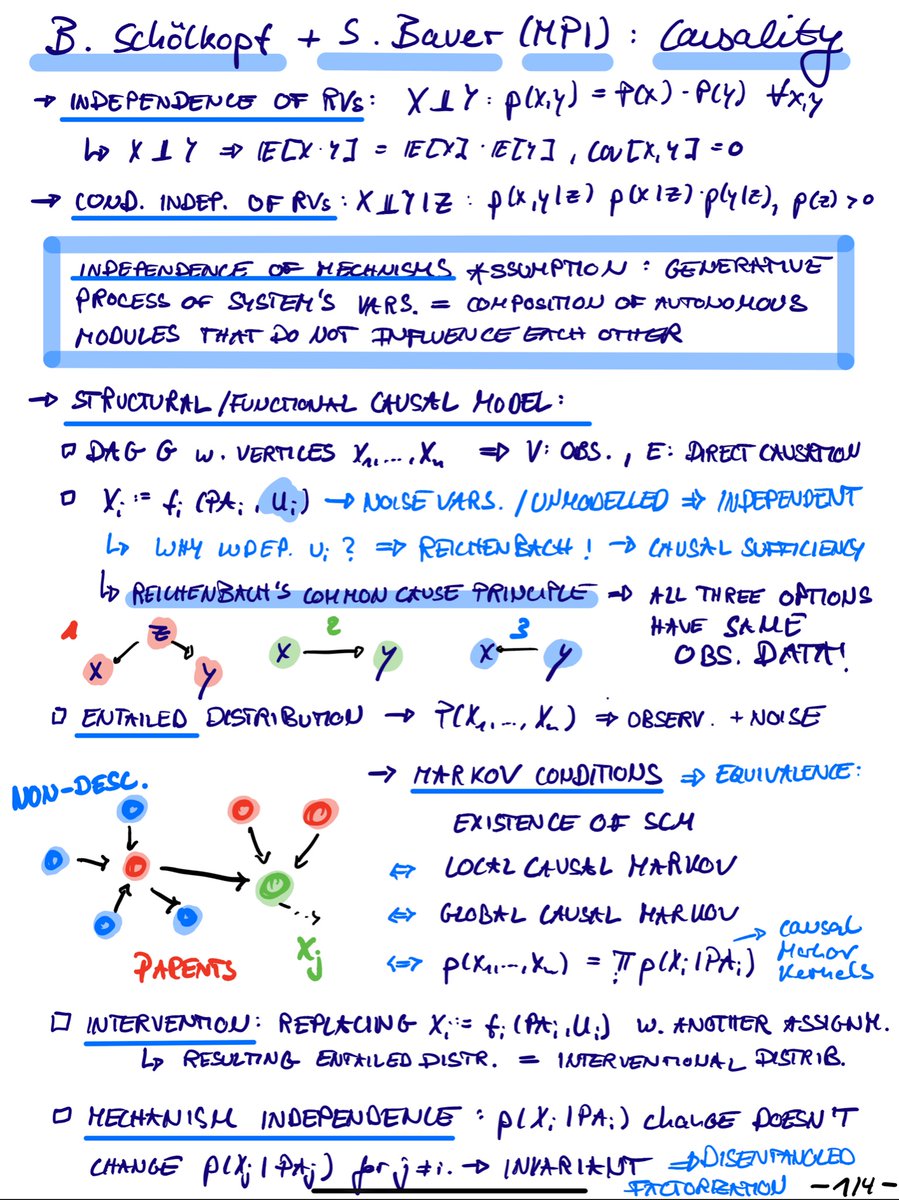 B. Schölkopf + S. Bauer (MPI) : Causality
→ INDEPENDENCE OF RVs: X ⫫ Y : p(x,y) = P(x) · P(y) ∀x,y
↳ X ⫫ Y ⇒ 𝔼[X · Y] = 𝔼[X] · 𝔼[Y], COV[X,Y] = 0
→ COND. INDEP. OF RVs: X ⫫ Y | Z : p(x,y|z) p(x|z) · p(y|z), p(z) > 0
INDEPENDENCE OF MECHANISMS ASSUMPTION : GENERATIVE
PROCESS OF SYSTEM'S VARS. = COMPOSITION OF AUTONOMOUS
MODULES THAT DO NOT INFLUENCE EACH OTHER
→ STRUCTURAL/FUNCTIONAL CAUSAL MODEL:
□ DAG G w. VERTICES X₁,...,Xₙ ⇒ V: OBS., E: DIRECT CAUSATION
□ Xᵢ := fᵢ (PAᵢ, Uᵢ) → NOISE VARS. / UNMODELLED ⇒ INDEPENDENT
↳ WHY INDEP. Uᵢ ? ⇒ REICHENBACH ! → CAUSAL SUFFICIENCY
↳ REICHENBACH'S COMMON CAUSE PRINCIPLE ⇒ ALL THREE OPTIONS
HAVE SAME
OBS. DATA!
1 Z X Y
2 X → Y
3 X ← Y
□ ENTAILED DISTRIBUTION → P(X₁,...,Xₙ) ⇒ OBSERV. + NOISE
NON-DESC.
PARENTS
Xⱼ
→ MARKOV CONDITIONS ⇒ EQUIVALENCE:
EXISTENCE OF SCM
⇔ LOCAL CAUSAL MARKOV
⇔ GLOBAL CAUSAL MARKOV
⇔ p(X₁,...,Xₙ) = ∏ᵢ p(Xᵢ | PAᵢ) → Causal
Markov
Kernels
□ INTERVENTION: REPLACING Xᵢ := fᵢ (PAᵢ, Uᵢ) W. ANOTHER ASSIGNM.
↳ RESULTING ENTAILED DISTR. = INTERVENTIONAL DISTRIB.
□ MECHANISM INDEPENDENCE : p(Xᵢ | PAᵢ) change DOESN'T
CHANGE p(Xⱼ | PAⱼ) for j ≠ i. → INVARIANT ⇒ DISENTANGLED
FACTORIZATION
- 1/4 -